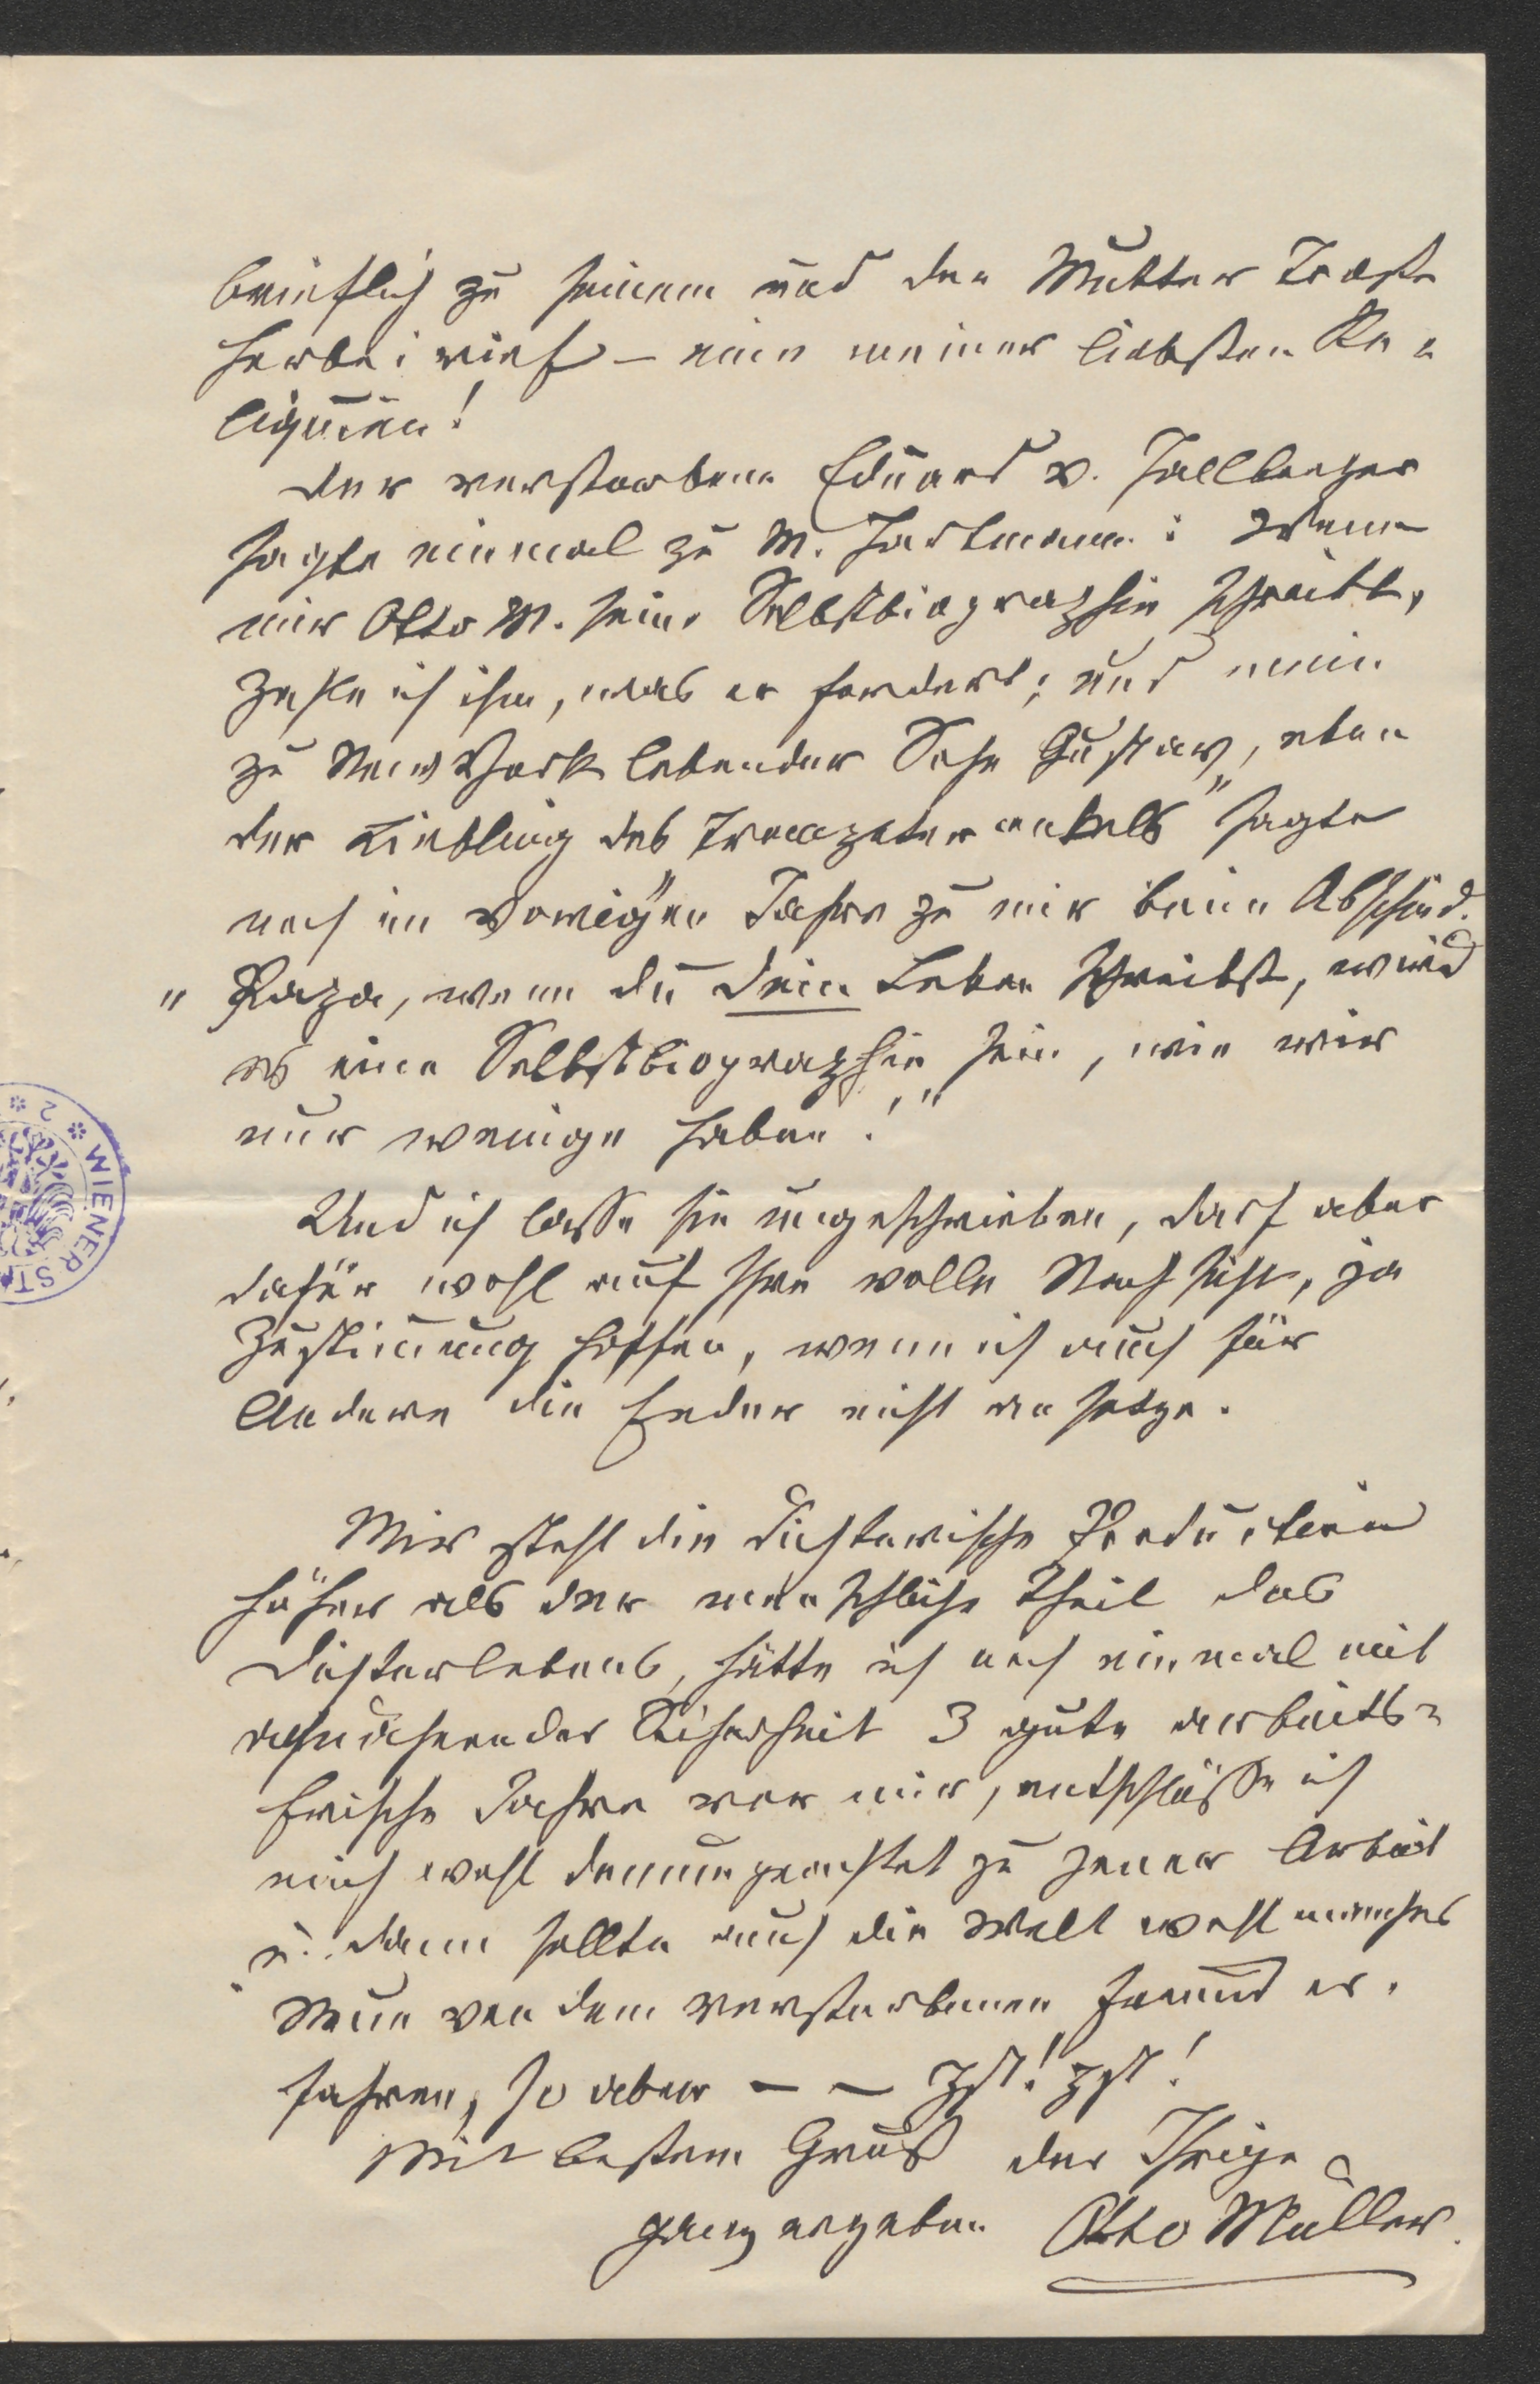 brieflich zu seinem und der Mutter Troste
herbei rief – eine meiner liebsten Re-
liquien!
Der verstorbene Eduard v. Hallberger
sagte einmal zu M. Hartmann: Wenn
mir Otto M. seine Selbstbiographie schreibt,
zahle ich ihm, was er fordert; und mein
zu New York lebender Sohn Gustav, eben
der Liebling des Trompeteronkels" sagte
noch im vorigen Jahre zu mir beim Abschied.
"Papa, wenn du dein Leben schreibst, wird
es eine Selbstbiographie sein, wie wir
nur wenige haben!"
Und ich lasse sie ungeschrieben, darf aber
dafür wohl auf Ihre volle Nachsicht, ja
Zustimmung hoffen, wenn ich auch für
Andere die Feder nicht ansetze.
Mir steht die dichterische Production
höher als der menschliche Theil des
Dichterlebens, hätte ich noch einmal mit
annähernder Sicherheit 3 gute arbeits-
frische Jahre vor mir, entschlösse ich
mich wohl demungeachtet zu jener Arbeit
u. dann sollte auch die Welt wohl manches
Neue von dem verstorbenen Freund er-
fahren, so aber – – Pst! pst!
Mit bestem Gruß der Ihrige
ganz ergeben Otto Müller.
WIENER ST
2